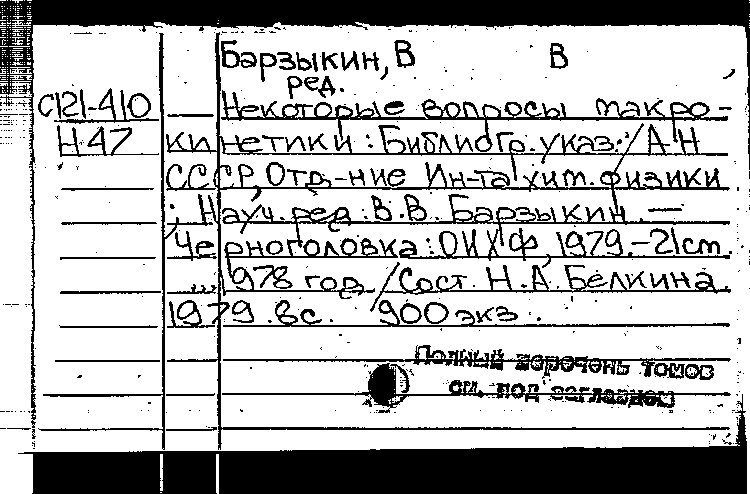 Барзыкин, В В
ред.
С121-410 Некоторые вопросы макро-
Н47 кинетики : Библиогр. указ. / АН
СССР, Отд-ние Ин-та хим. физики
; Науч. ред.: В. В. Барзыкин. —
Черноголовка : ОИХФ, 1979. – 21 см.
... 1978 год / Сост. Н. А. Белкина.
1979. 8 с. 900 экз.
Полный перечень томов
см. под заглавием